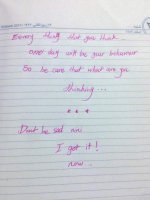 Everery thing that you think
over day will be your behaviour
So be care that what are you
thinking...
* * *
Dont be sad ani
I got it!
now..